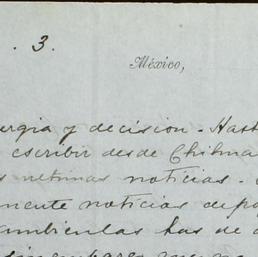 . 3.
México,
ergia y decision - Hast
escribir desde Chihua
s ultimas noticias -
mente noticias de po
ambientes has de